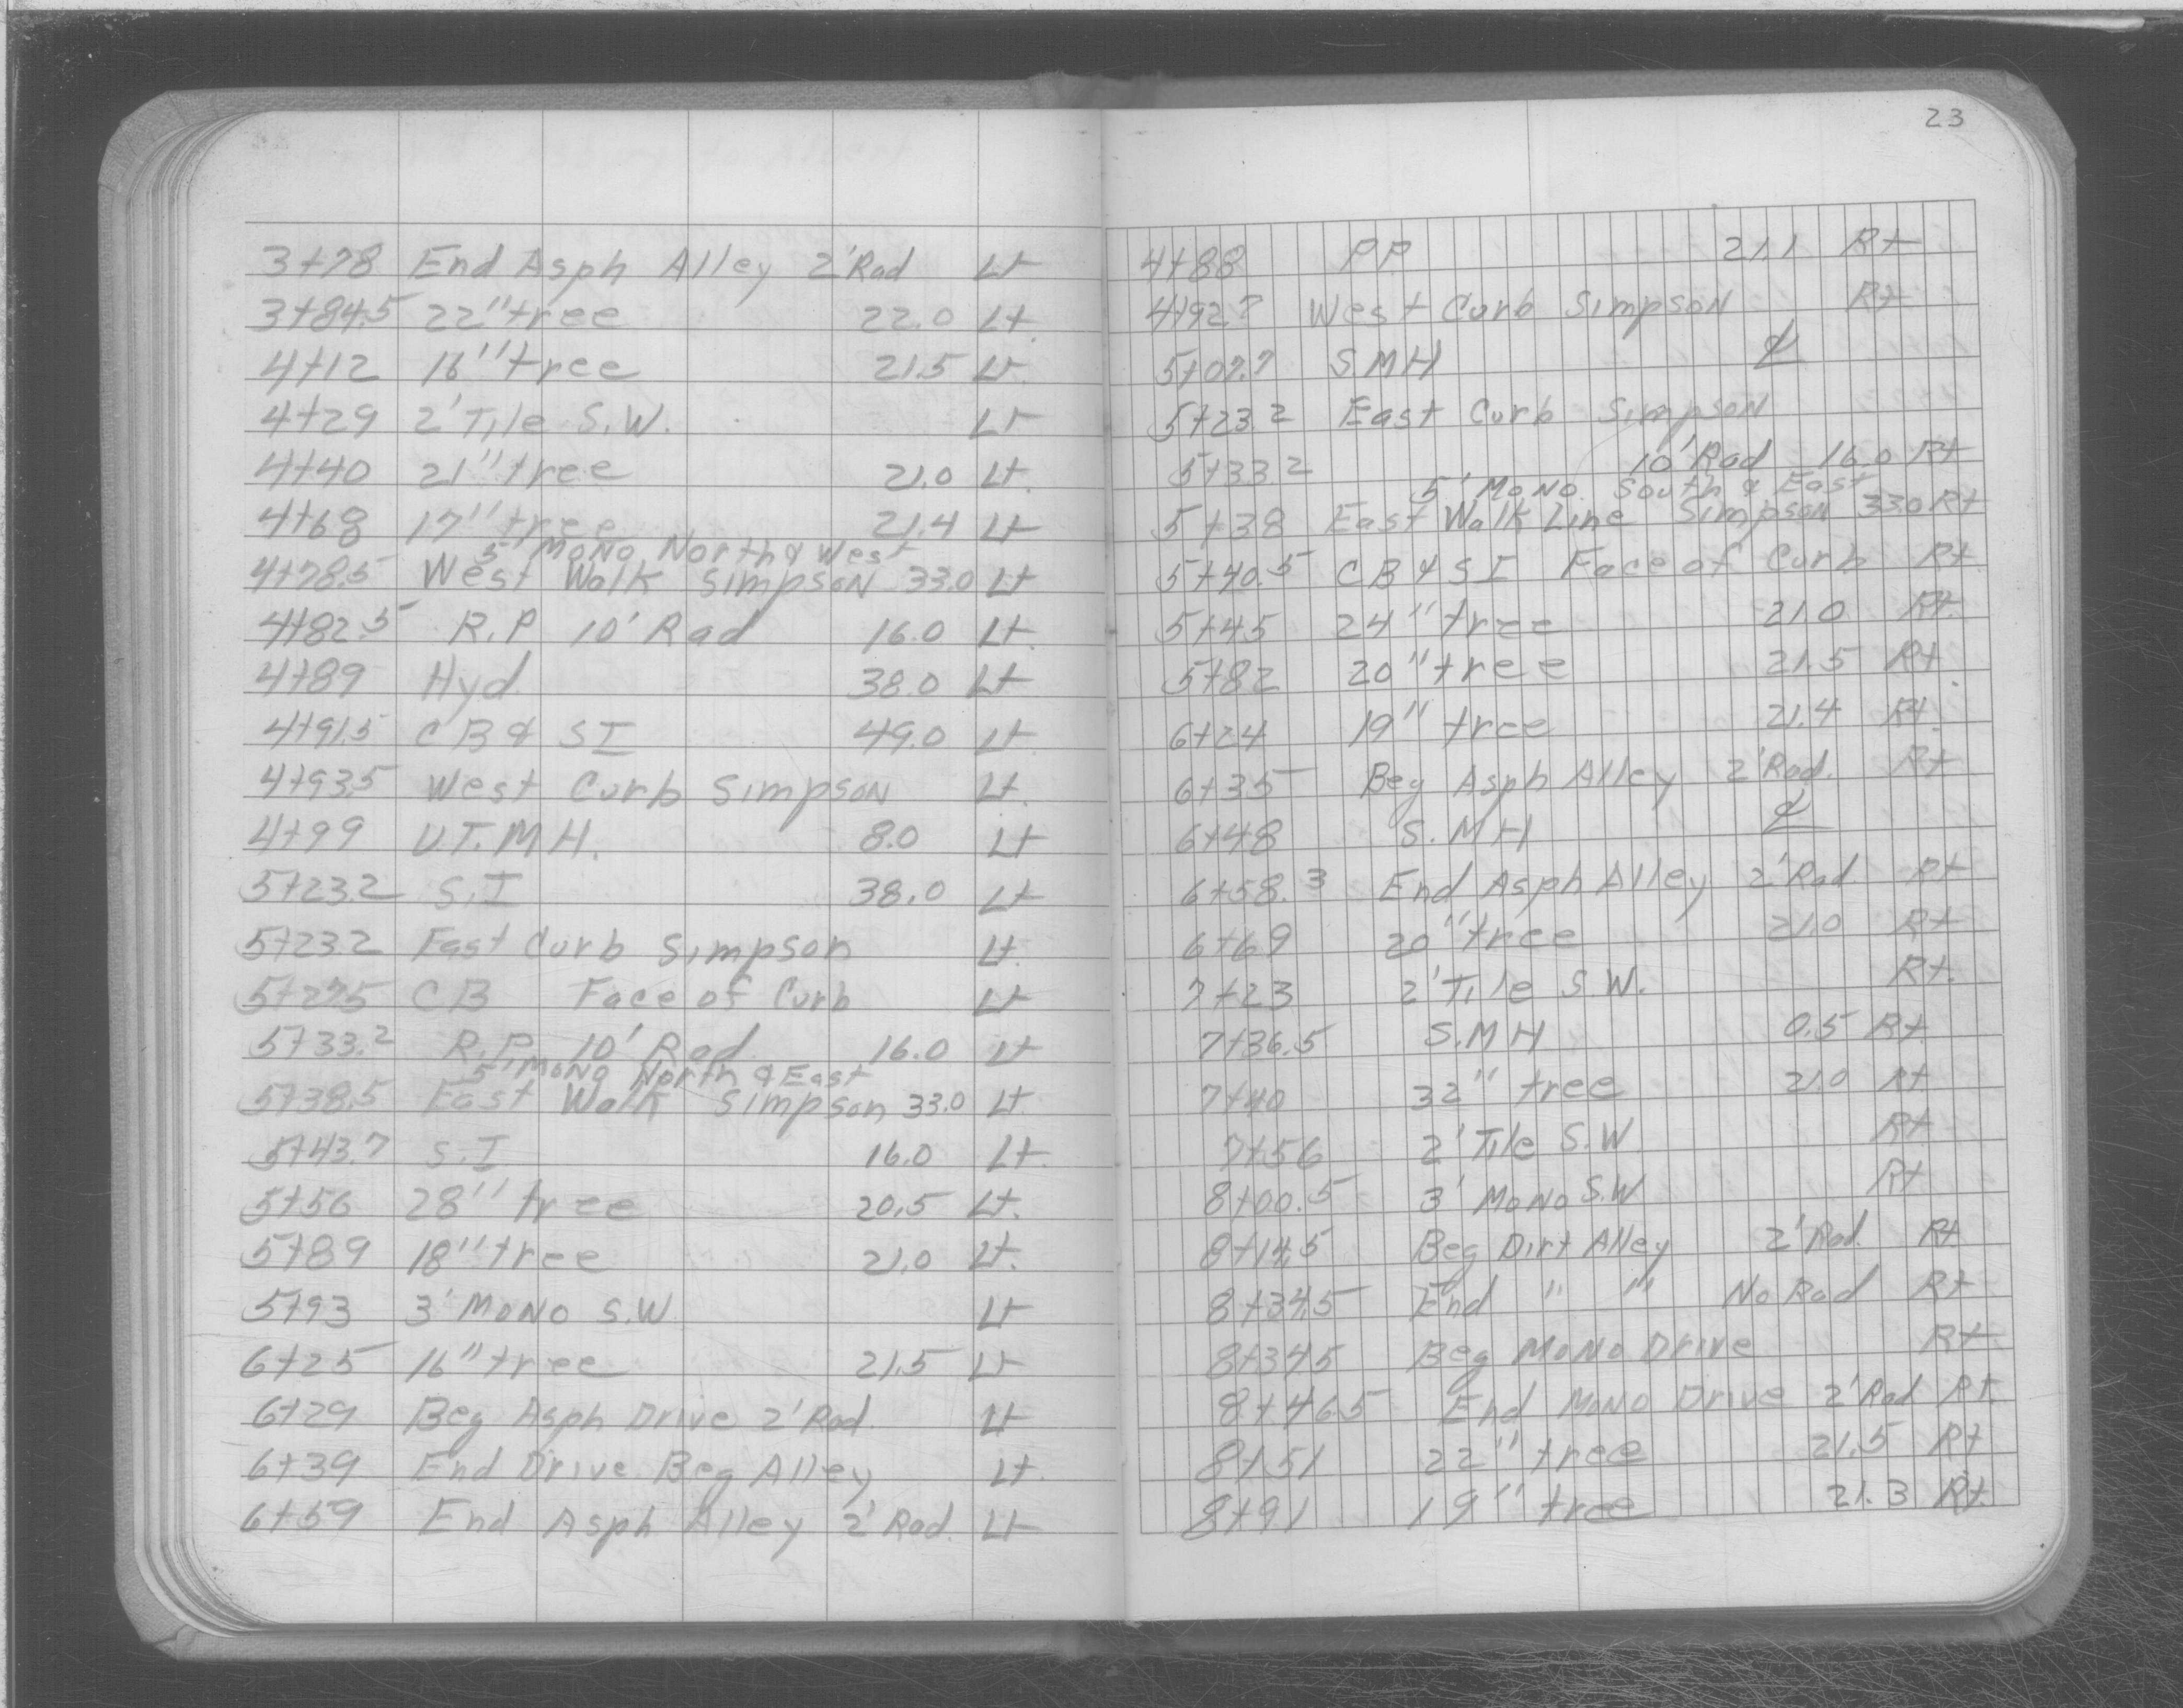 3+78 End Asph Alley 2'Rad Lt
3+84.5 22" tree 22.0 Lt.
4+12 16" tree 21.5 Lt.
4+29 2' Tile S.W. Lt
4+40 21" tree 21.0 Lt.
4+68 17" tree 21.4 Lt
5' Mono North & West
4+78.5 West Walk Simpson 33.0 Lt
4+82.5 R.P 10' Rad 16.0 Lt.
4+89 Hyd. 38.0 Lt
4+91.5 CB & SI 49.0 Lt
4+93.5 West Curb Simpson Lt.
4+99 U.T.M H. 8.0 Lt
5+23.2 S.I 38.0 Lt
5+23.2 East Curb Simpson Lt.
5+27.5 CB Face of Curb Lt
5+33.2 R.P. 10' Rad 16.0 Lt
5' Mono North & East
5+38.5 East Walk Simpson 33.0 Lt.
5+43.7 S.I 16.0 Lt.
5+56 28" tree 20.5 Lt.
5+89 18" tree 21.0 Lt.
5+93 3' Mono S.W Lt
6+25 16" tree 21.5 Lt
6+29 Beg Asph Drive 2'Rad. Lt
6+39 End Drive Beg Alley Lt.
6+59 End Asph Alley 2' Rad. Lt
23
4+88 PP 21.1 Rt
4+92.7 West Curb Simpson Rt
5+07.7 SMH ℄
5+23.2 East Curb Simpson
5+33.2 10' Rad 16.0 Rt
5' Mono. South & East
5+38 East Walk Line Simpson 33.0 Rt
5+40.5 CB & SI Face of Curb Rt
5+45 24" tree 21.0 Rt.
5+82 20" tree 21.5 Rt
6+24 19" tree 21.4 Rt.
6+35 Beg Asph Alley 2'Rad. Rt
6+48 S.MH ℄
6+58.3 End Asph Alley 2'Rad. Rt
6+69 20" tree 21.0 Rt
7+23 2' Tile S.W. Rt.
7+36.5 S.MH 0.5 Rt.
7+40 32" tree 21.0 Rt
7+56 2' Tile S.W. Rt
8+00.5 3' Mono S.W Rt
8+14.5 Beg Dirt Alley 2' Rad. Rt.
8+34.5 End " " No Rad Rt
8+34.5 Beg Mono Drive Rt.
8+46.5 End Mono Drive 2' Rad Rt.
8+51 22" tree 21.5 Rt
8+91 19" tree 21.3 Rt.